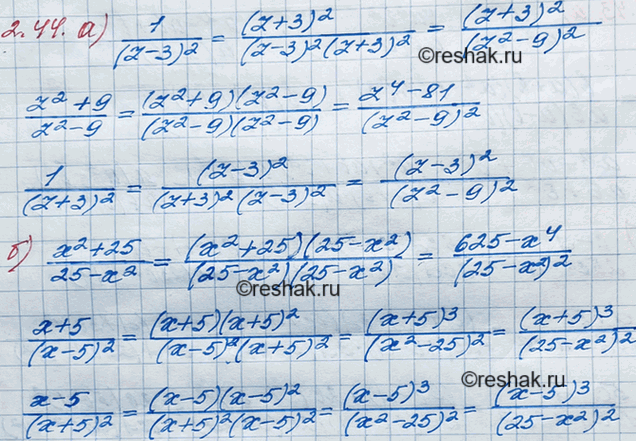 2.44. а) 1/(z-3)² = (z+3)²/((z-3)²(z+3)²) = (z+3)²/(z²-9)²
©reshak.ru
(z²+9)/(z²-9) = ((z²+9)(z²-9))/((z²-9)(z²-9)) = (z⁴-81)/(z²-9)²
1/(z+3)² = (z-3)²/((z+3)²(z-3)²) = (z-3)²/(z²-9)²
б) (x²+25)/(25-x²) = ((x²+25)(25-x²))/((25-x²)(25-x²)) = (625-x⁴)/(25-x²)²
©reshak.ru
(x+5)/(x-5)² = ((x+5)(x+5)²)/((x-5)²(x+5)²) = (x+5)³/(x²-25)² = (x+5)³/(25-x²)²
©reshak.ru
(x-5)/(x+5)² = ((x-5)(x-5)²)/((x+5)²(x-5)²) = (x-5)³/(x²-25)² = (x-5)³/(25-x²)²